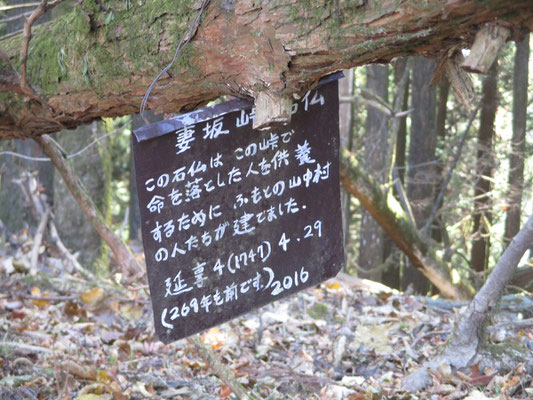 妻坂峠 石仏
この石仏は この峠で
命を落とした人を供養
するために ふもとの山中村
の人たちが建てました.
延享4(1747) 4.29
(269年も前です) 2016